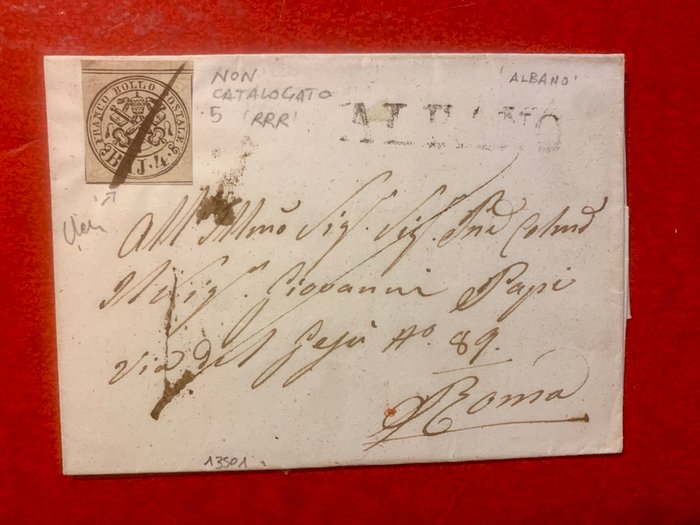 FRANCO BOLLO POSTALE
BAJ. 4.
NON
CATALOGATO
5 'RRR'
'ALBANO'
ALBANO
All Illmo Sig. Sig. Pne Colmo
Il Sig. Giovanni Papi
Via del Gesù No. 89.
Roma
13501